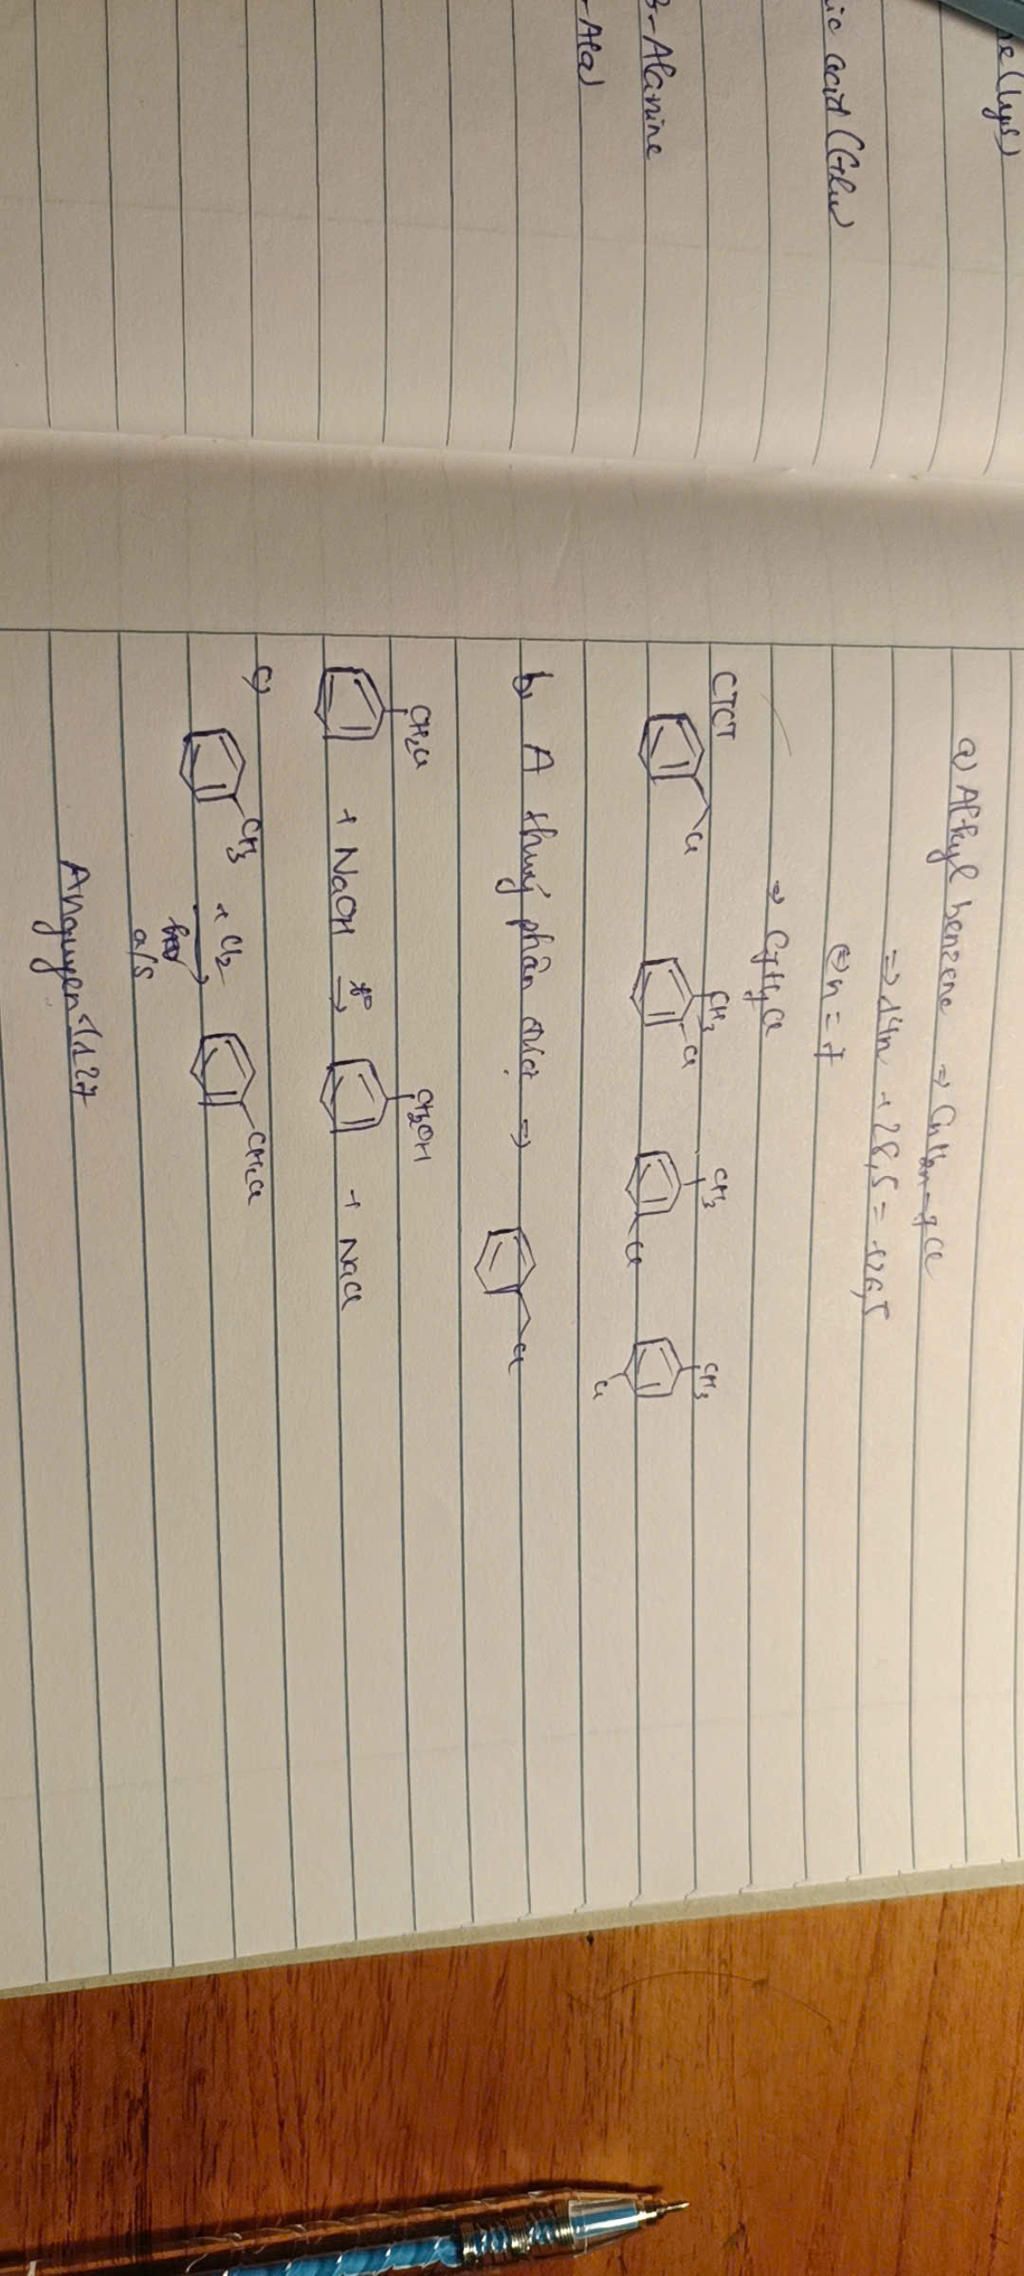 (Lys)
ic acid (Glu)
β-Alanine
-Ala)
a) Alkyl benzene ⇒ CnH2n-7Cl
⇒ 14n + 28,5 = 126,5
⇔ n = 7
⇒ C7H7Cl
CTCT
Cl CH3 Cl CH3 Cl CH3 Cl
b) A thuỷ phân được ⇒ Cl
CH2Cl + NaOH t° → CH2OH + NaCl
c) CH3 + Cl2 → CH2Cl
a/s
Anguyen<1127